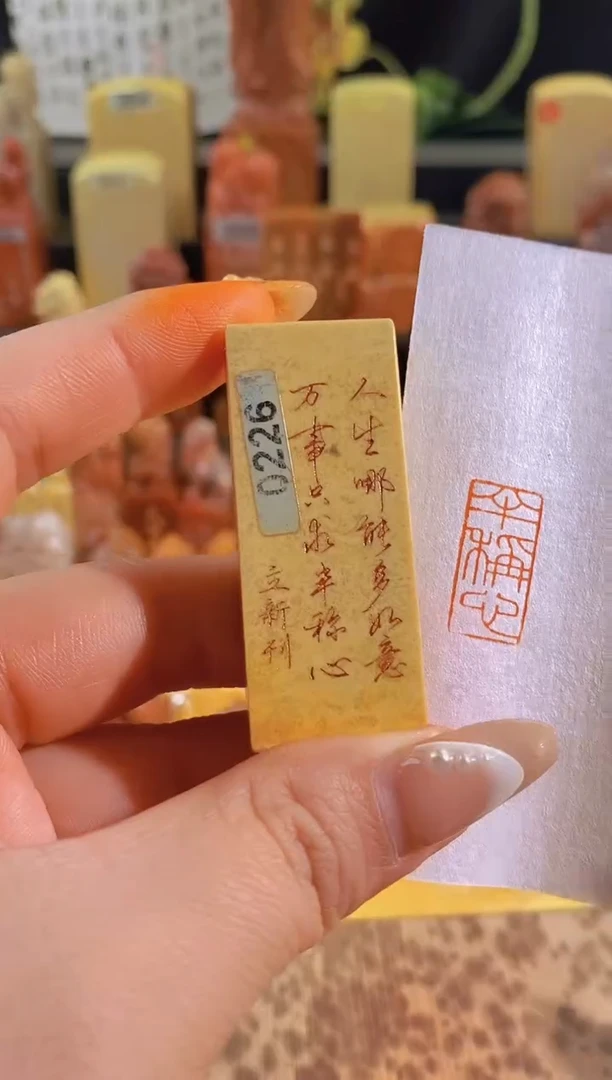 人生哪能多如意
万事只求半称心
立新刊
0226
半稱心